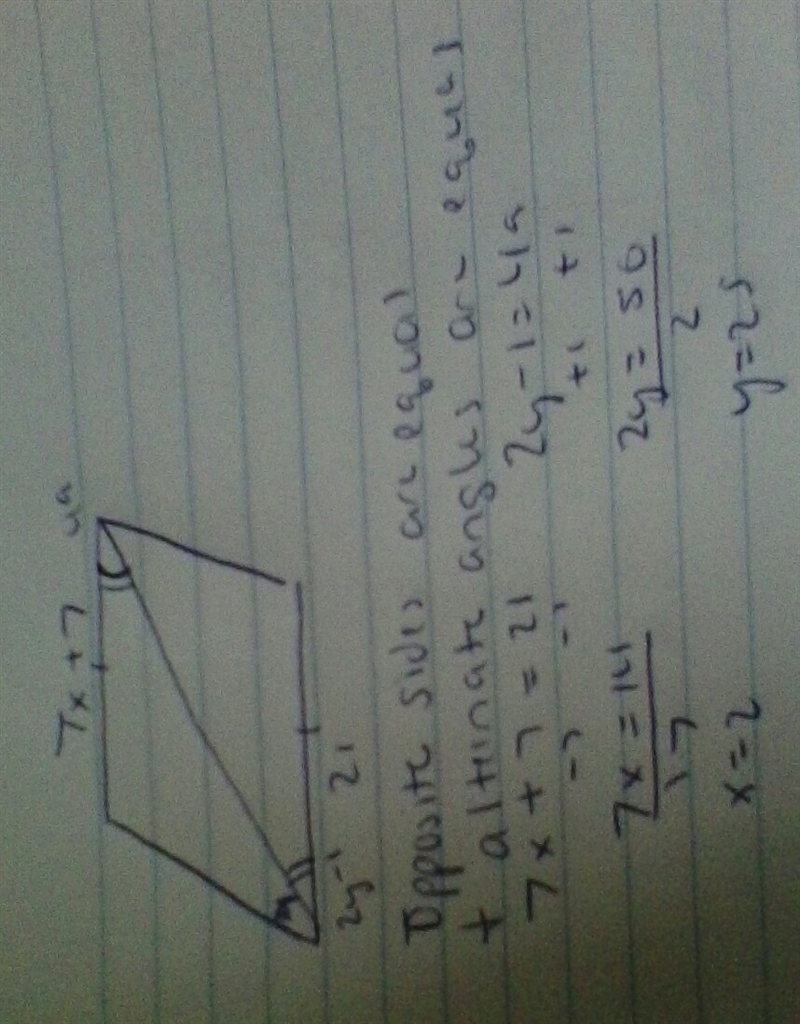 7x + 7
49
2y-1
21
Opposite sides are equal
+ altrinate angles are equal
7x + 7 = 21 2y - 1 = 49
-7 -7 +1 +1
7x = 14 2y = 50
7 2
x = 2 y = 25